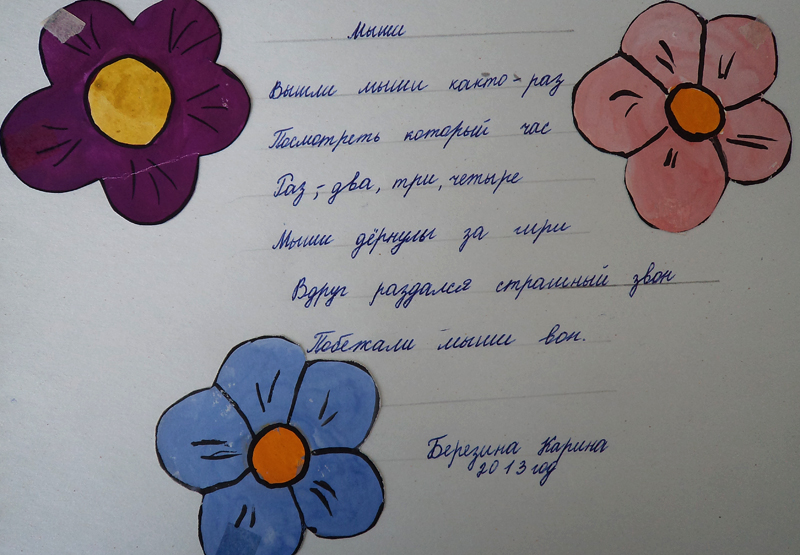 Мыши
Вышли мыши както-раз
Посмотреть который час
Раз,- два, три, четыре
Мыши дёрнулы за гири
Вдруг раздался страшный звон
Побежали мыши вон.
Березина Карина
2013 год